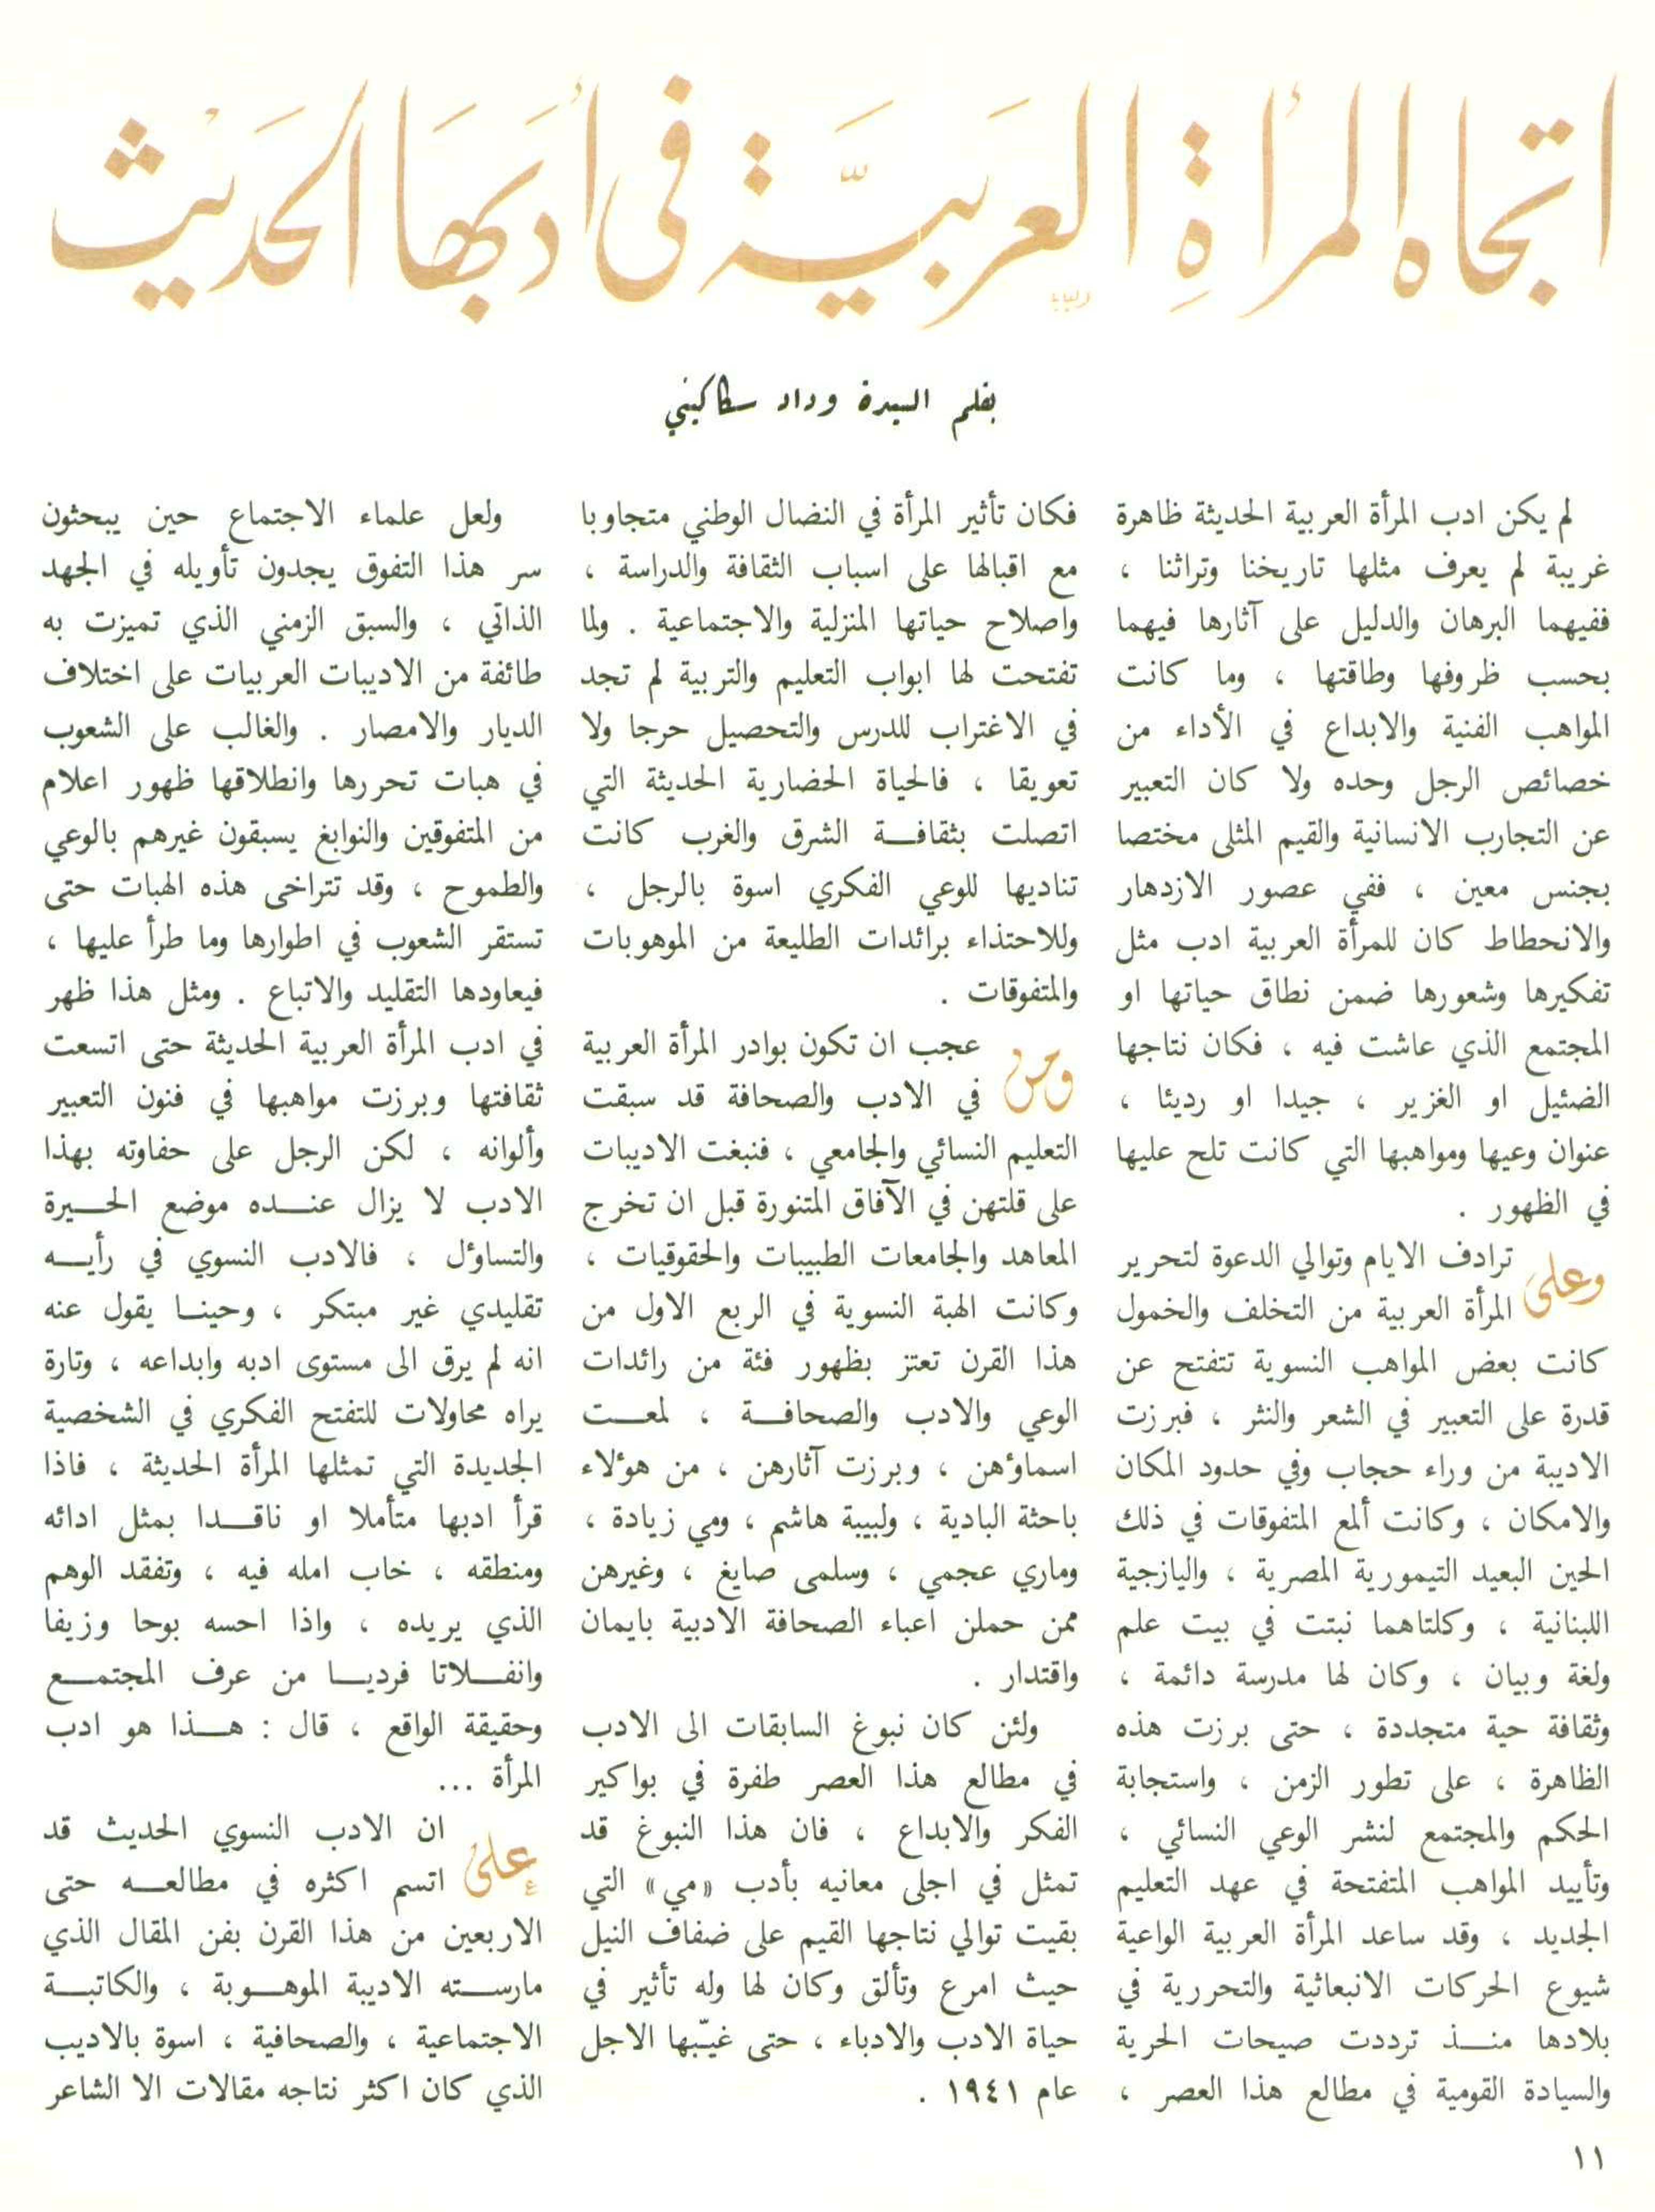 اتجاه المرأة العربيّة في أدبها الحديث
بقلم السيدة وداد سكاكيني
لم يكن ادب المرأة العربية الحديثة ظاهرة
غريبة لم يعرف مثلها تاريخنا وتراثنا ،
ففيهما البرهان والدليل على آثارها فيهما
بحسب ظروفها وطاقتها ، وما كانت
المواهب الفنية والابداع في الأداء من
خصائص الرجل وحده ولا كان التعبير
عن التجارب الانسانية والقيم المثلى مختصا
بجنس معين ، ففي عصور الازدهار
والانحطاط كان للمرأة العربية ادب مثل
تفكيرها وشعورها ضمن نطاق حياتها او
المجتمع الذي عاشت فيه ، فكان نتاجها
الضئيل او الغزير ، جيدا او رديئا ،
عنوان وعيها ومواهبها التي كانت تلح عليها
في الظهور .
وعلى ترادف الايام وتوالي الدعوة لتحرير
المرأة العربية من التخلف والخمول
كانت بعض المواهب النسوية تتفتح عن
قدرة على التعبير في الشعر والنثر ، فبرزت
الاديبة من وراء حجاب وفي حدود المكان
والامكان ، وكانت ألمع المتفوقات في ذلك
الحين البعيد التيمورية المصرية ، واليازجية
اللبنانية ، وكلتاهما نبتت في بيت علم
ولغة وبيان ، وكان لها مدرسة دائمة ،
وثقافة حية متجددة ، حتى برزت هذه
الظاهرة ، على تطور الزمن ، واستجابة
الحكم والمجتمع لنشر الوعي النسائي ،
وتأييد المواهب المتفتحة في عهد التعليم
الجديد ، وقد ساعد المرأة العربية الواعية
شيوع الحركات الانبعاثية والتحررية في
بلادها منذ ترددت صيحات الحرية
والسيادة القومية في مطالع هذا العصر ،
فكان تأثير المرأة في النضال الوطني متجاوبا
مع اقبالها على اسباب الثقافة والدراسة ،
واصلاح حياتها المنزلية والاجتماعية . ولما
تفتحت لها ابواب التعليم والتربية لم تجد
في الاغتراب للدرس والتحصيل حرجا ولا
تعويقا ، فالحياة الحضارية الحديثة التي
اتصلت بثقافة الشرق والغرب كانت
تناديها للوعي الفكري اسوة بالرجل ،
وللاحتذاء برائدات الطليعة من الموهوبات
والمتفوقات .
ومن عجب ان تكون بوادر المرأة العربية
في الادب والصحافة قد سبقت
التعليم النسائي والجامعي ، فنبغت الاديبات
على قلتهن في الآفاق المتنورة قبل ان تخرج
المعاهد والجامعات الطبيبات والحقوقيات ،
وكانت الهبة النسوية في الربع الاول من
هذا القرن تعتز بظهور فئة من رائدات
الوعي والادب والصحافة ، لمعت
اسماؤهن ، وبرزت آثارهن ، من هؤلاء
باحثة البادية ، ولبيبة هاشم ، ومي زيادة ،
وماري عجمي ، وسلمى صايغ ، وغيرهن
ممن حملن اعباء الصحافة الادبية بايمان
واقتدار .
ولئن كان نبوغ السابقات الى الادب
في مطالع هذا العصر طفرة في بواكير
الفكر والابداع ، فان هذا النبوغ قد
تمثل في اجلى معانيه بأدب «مي» التي
بقيت توالي نتاجها القيم على ضفاف النيل
حيث امرع وتألق وكان لها وله تأثير في
حياة الادب والادباء ، حتى غيّبها الاجل
عام ١٩٤١ .
ولعل علماء الاجتماع حين يبحثون
سر هذا التفوق يجدون تأويله في الجهد
الذاتي ، والسبق الزمني الذي تميزت به
طائفة من الاديبات العربيات على اختلاف
الديار والامصار . والغالب على الشعوب
في هبات تحررها وانطلاقها ظهور اعلام
من المتفوقين والنوابغ يسبقون غيرهم بالوعي
والطموح ، وقد تتراخى هذه الهبات حتى
تستقر الشعوب في اطوارها وما طرأ عليها ،
فيعاودها التقليد والاتباع . ومثل هذا ظهر
في ادب المرأة العربية الحديثة حتى اتسعت
ثقافتها وبرزت مواهبها في فنون التعبير
وألوانه ، لكن الرجل على حفاوته بهذا
الادب لا يزال عنده موضع الحيرة
والتساؤل ، فالادب النسوي في رأيه
تقليدي غير مبتكر ، وحينا يقول عنه
انه لم يرق الى مستوى ادبه وابداعه ، وتارة
يراه محاولات للتفتح الفكري في الشخصية
الجديدة التي تمثلها المرأة الحديثة ، فاذا
قرأ ادبها متأملا او ناقدا بمثل ادائه
ومنطقه ، خاب امله فيه ، وتفقد الوهم
الذي يريده ، واذا احسه بوحا وزيفا
وانفلاتا فرديا من عرف المجتمع
وحقيقة الواقع ، قال : هذا هو ادب
المرأة ...
على ان الادب النسوي الحديث قد
اتسم اكثره في مطالعه حتى
الاربعين من هذا القرن بفن المقال الذي
مارسته الاديبة الموهوبة ، والكاتبة
الاجتماعية ، والصحافية ، اسوة بالاديب
الذي كان اكثر نتاجه مقالات الا الشاعر
١١